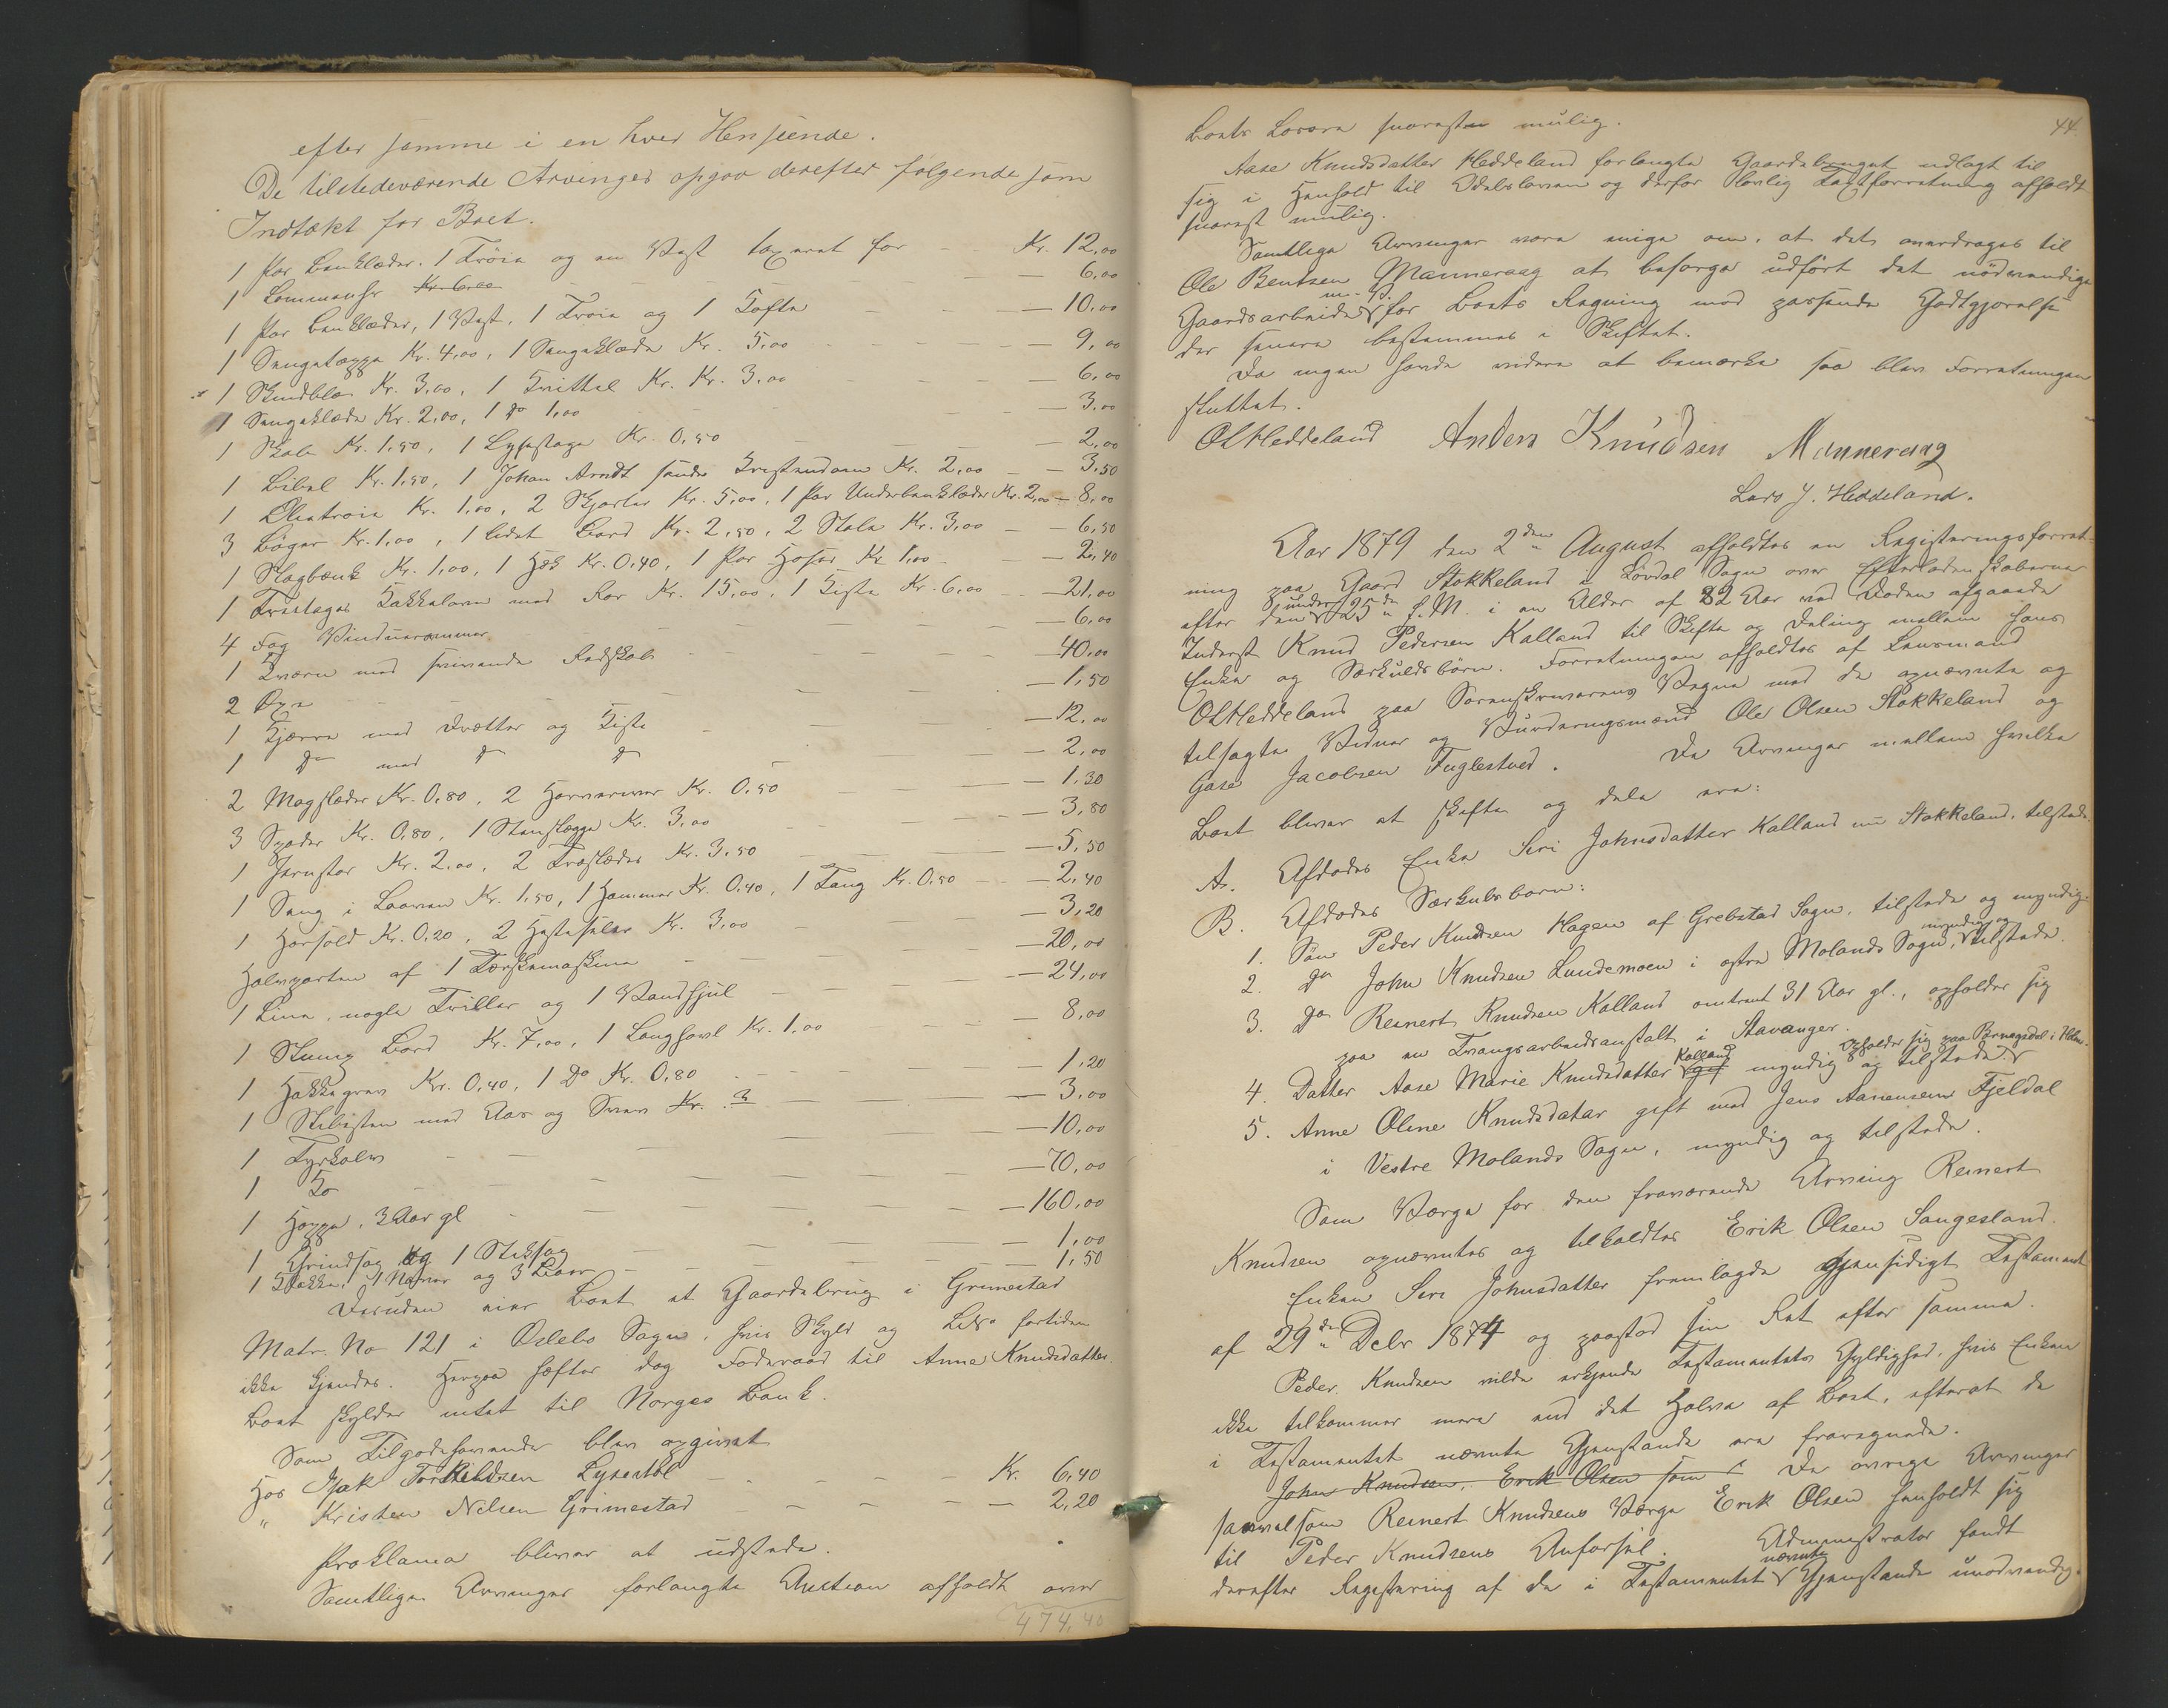 efter samme i en hver Henseende.
De tilstedeværende Arvinger opgav derefter følgende som
Indtækt for Boet.
1 Par Benklæder, 1 Trøie og en Vest taxeret for Kr. 12,00
1 Lommeuhr Kr. 6,00 — 6,00
1 Par Benklæder, 1 Vest, 1 Trøie og 1 Kofte — 10,00
1 Sengetæppe Kr. 4,00, 1 Sengeklæde Kr. 5,00 — 9,00
1 Skindfeld Kr. 3,00, 1 Kvittel Kr. Kr. 3,00 — 6,00
1 Sengeklæde Kr. 2,00, 1 do 1,00 — 3,00
1 Skole Kr. 1,50, 1 Lysestage Kr. 0,50 — 2,00
1 Bibel Kr. 1,50, 1 Johan Arndt sande Kristendom Kr. 2,00 — 3,50
1 Olietrøie Kr. 1,00, 2 Skjorter Kr. 5,00, 1 Par Underbenklæder Kr. 2,00 — 8,00
3 Bøger Kr. 1,00, 1 lidet Bord Kr. 2,50, 2 Stole Kr. 3,00 — 6,50
1 Slagbænk Kr. 1,00, 1 Kr. 0,40, 1 Par Hoser Kr. 1,00 — 2,40
1 Treetages Kakkelovn med Rør Kr. 15,00, 1 Kiste Kr. 6,00 — 21,00
4 Fag Vinduerammer — 6,00
1 Kværn med Redskab — 40,00
2 Øxe — 1,50
1 Kjærre med Drætter og Kiste — 12,00
1 do med do do — 2,00
2 Møgslæder Kr. 0,80, 2 Kr. 0,50 — 1,30
3 Spader Kr. 0,80, 1 Stenslægge Kr. 3,00 — 3,80
1 Jernstør Kr. 2,00, 2 Træslæder Kr. 3,50 — 5,50
1 Seng i Kr. 1,50, 1 Hammer Kr. 0,40, 1 Tang Kr. 0,50 — 2,40
1 Kr. 0,20, 2 Hesteseler Kr. 3,00 — 3,20
Halvparten af 1 Tærskemaskine — 20,00
1 Line, nogle Triller og 1 Vandhjul — 24,00
1 Bord Kr. 7,00, 1 Langhøvl Kr. 1,00 — 8,00
1 Hakkegrev Kr. 0,40, 1 do Kr. 0,80 — 1,20
1 Slibesten med Aas og Kr. 3 — 3,00
1 Tyrkalv — 10,00
1 Ko — 70,00
1 Hoppe, 3 Aar gl — 160,00
1 Grindsag og 1 Stiksag — 1,00
1 1 Naver og 3 — 1,50
Desuden eier Boet et Gaardsbrug i Grimestad
Matr. No 121 i Oslebo Sogn, hvis Skyld og LNo fortiden
ikke kjendes. Herpaa hæfter dog Føderaad til Anne Knudsdatter.
Boet skylder intet til Norges Bank.
Som Tilgodehavende blev opgivet
Hos Isak Torkildsen Kr. 6,40
" Kristen Nelsen Grimestad — 2,20
Proklama bliver at udstede.
Samtlige Arvinger forlangte Auktion afholdt over
474,40
44.
Boets Løsøre snarest mulig.
Aase Knudsdatter Heddeland forlangte Gaardsbruget udlagt til
sig i Henhold til Odelsloven og derfor lovlig Taxtforretning afholdt
snarest mulig.
Samtlige Arvinger vare enige om, at det overdrages til
Ole Bentsen Manneraag at besørge udført det nødvendige
Gaardsarbeide m. V. for Boets Regning mod passende Godtgjørelse
der senere bestemmes i Skiftet.
Da ingen havde videre at bemærke saa blev Forretningen
sluttet.
OHeddeland Anders Knudsen Mannerang
Lars J. Heddeland.
Aar 1879 den 2den August afholdtes en Registreringsforret-
ning paa Gaard Stokkeland i Løvdal Sogn over Efterladenskaberne
efter den under 25de f. M. i en Alder af 82 Aar ved Døden afgaaede
Inderst Knud Pedersen Kalland til Skifte og Deling mellem hans
Enke og Særkuldsbørn. Forretningen afholdtes af Lensmand
OHeddeland paa Sorenskriverens Vegne med de opnævnte og
tilsagte Vidner og Vurderingsmænd Ole Olsen Stokkeland og
Gase Jacobsen Fuglestved. De Arvinger mellem hvilke
Boet bliver at skifte og dele ere:
A. Afdødes Enke Siri Johnsdatter Kalland nu Stokkeland, tilstede.
B. Afdødes Særkulsbørn:
1. Søn Peder Knudsen Hagen af Grebstad Sogn, tilstede og myndig.
2. do John Knudsen Lundemoen i østre Molands Sogn, myndig og tilstede.
3. do Reinert Knudsen Kalland omtrent 31 Aar gl., opholder sig
paa en Tvangsarbeidsanstalt i Stavanger.
4. Datter Aase Marie Knudsdatter gift Kalland myndig og tilstede opholder sig paa
5. Anne Oline Knudsdatter gift med Jens Aanensen Fjeldal
i Vestre Molands Sogn, myndig og tilstede.
Som Værge for den fraværende Arving Reinert
Knudsen opnævntes og tilkaldtes Erik Olsen Saugesland.
Enken Siri Johnsdatter fremlagde gjensidigt Testament
af 29de Decbr 1874 og paastod sin Ret efter samme.
Peder Knudsen vilde erkjende Testamentets Gyldighed, hvis Enken
ikke tilkommer mere end det Halve af Boet, efterat de
i Testamentet nævnte Gjenstande ere fraregnede.
John Knudsen, Erik Olsen som De øvrige Arvinger
saavelsom Reinert Knudsens Værge Erik Olsen henholdt sig
til Peder Knudsens Anførsel. Administrator fandt
derefter Registrering af de i Testamentet nævnte Gjenstande unødvendig.